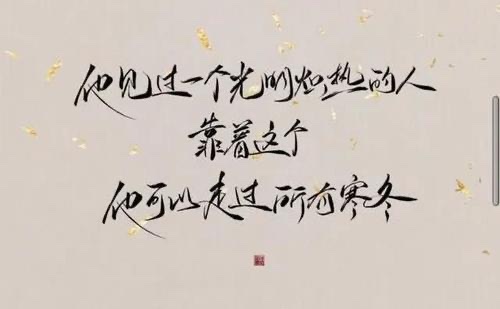 他见过一个光明炽热的人
靠着这个
他可以走过所有寒冬